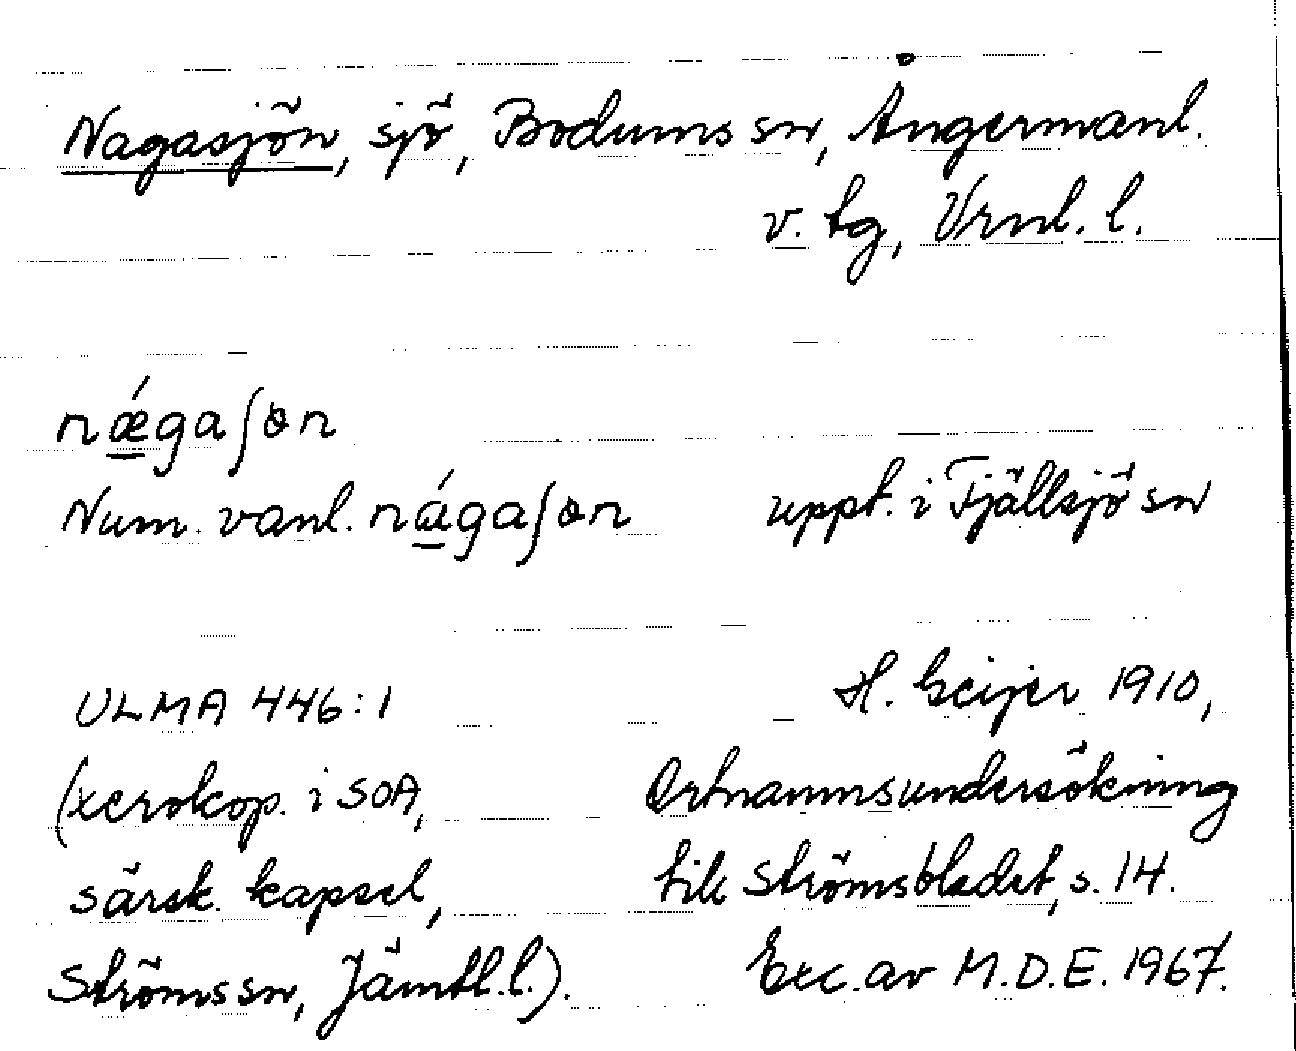 Nagasjön, sjö, Bodums sn, Ångermanl.
v. tg, Vrnl. l.
nǽgaʃɵn
Num. vanl. nágaʃɵn uppt. i Fjällsjö sn
ULMA 446:1 H. Geijer 1910,
(xerokop. i SOA, Ortnamnsundersökning
särsk. kapsel, till Strömsbladet, s. 14.
Ströms sn, Jämtl. l.). Exc. av M.D.E. 1967.